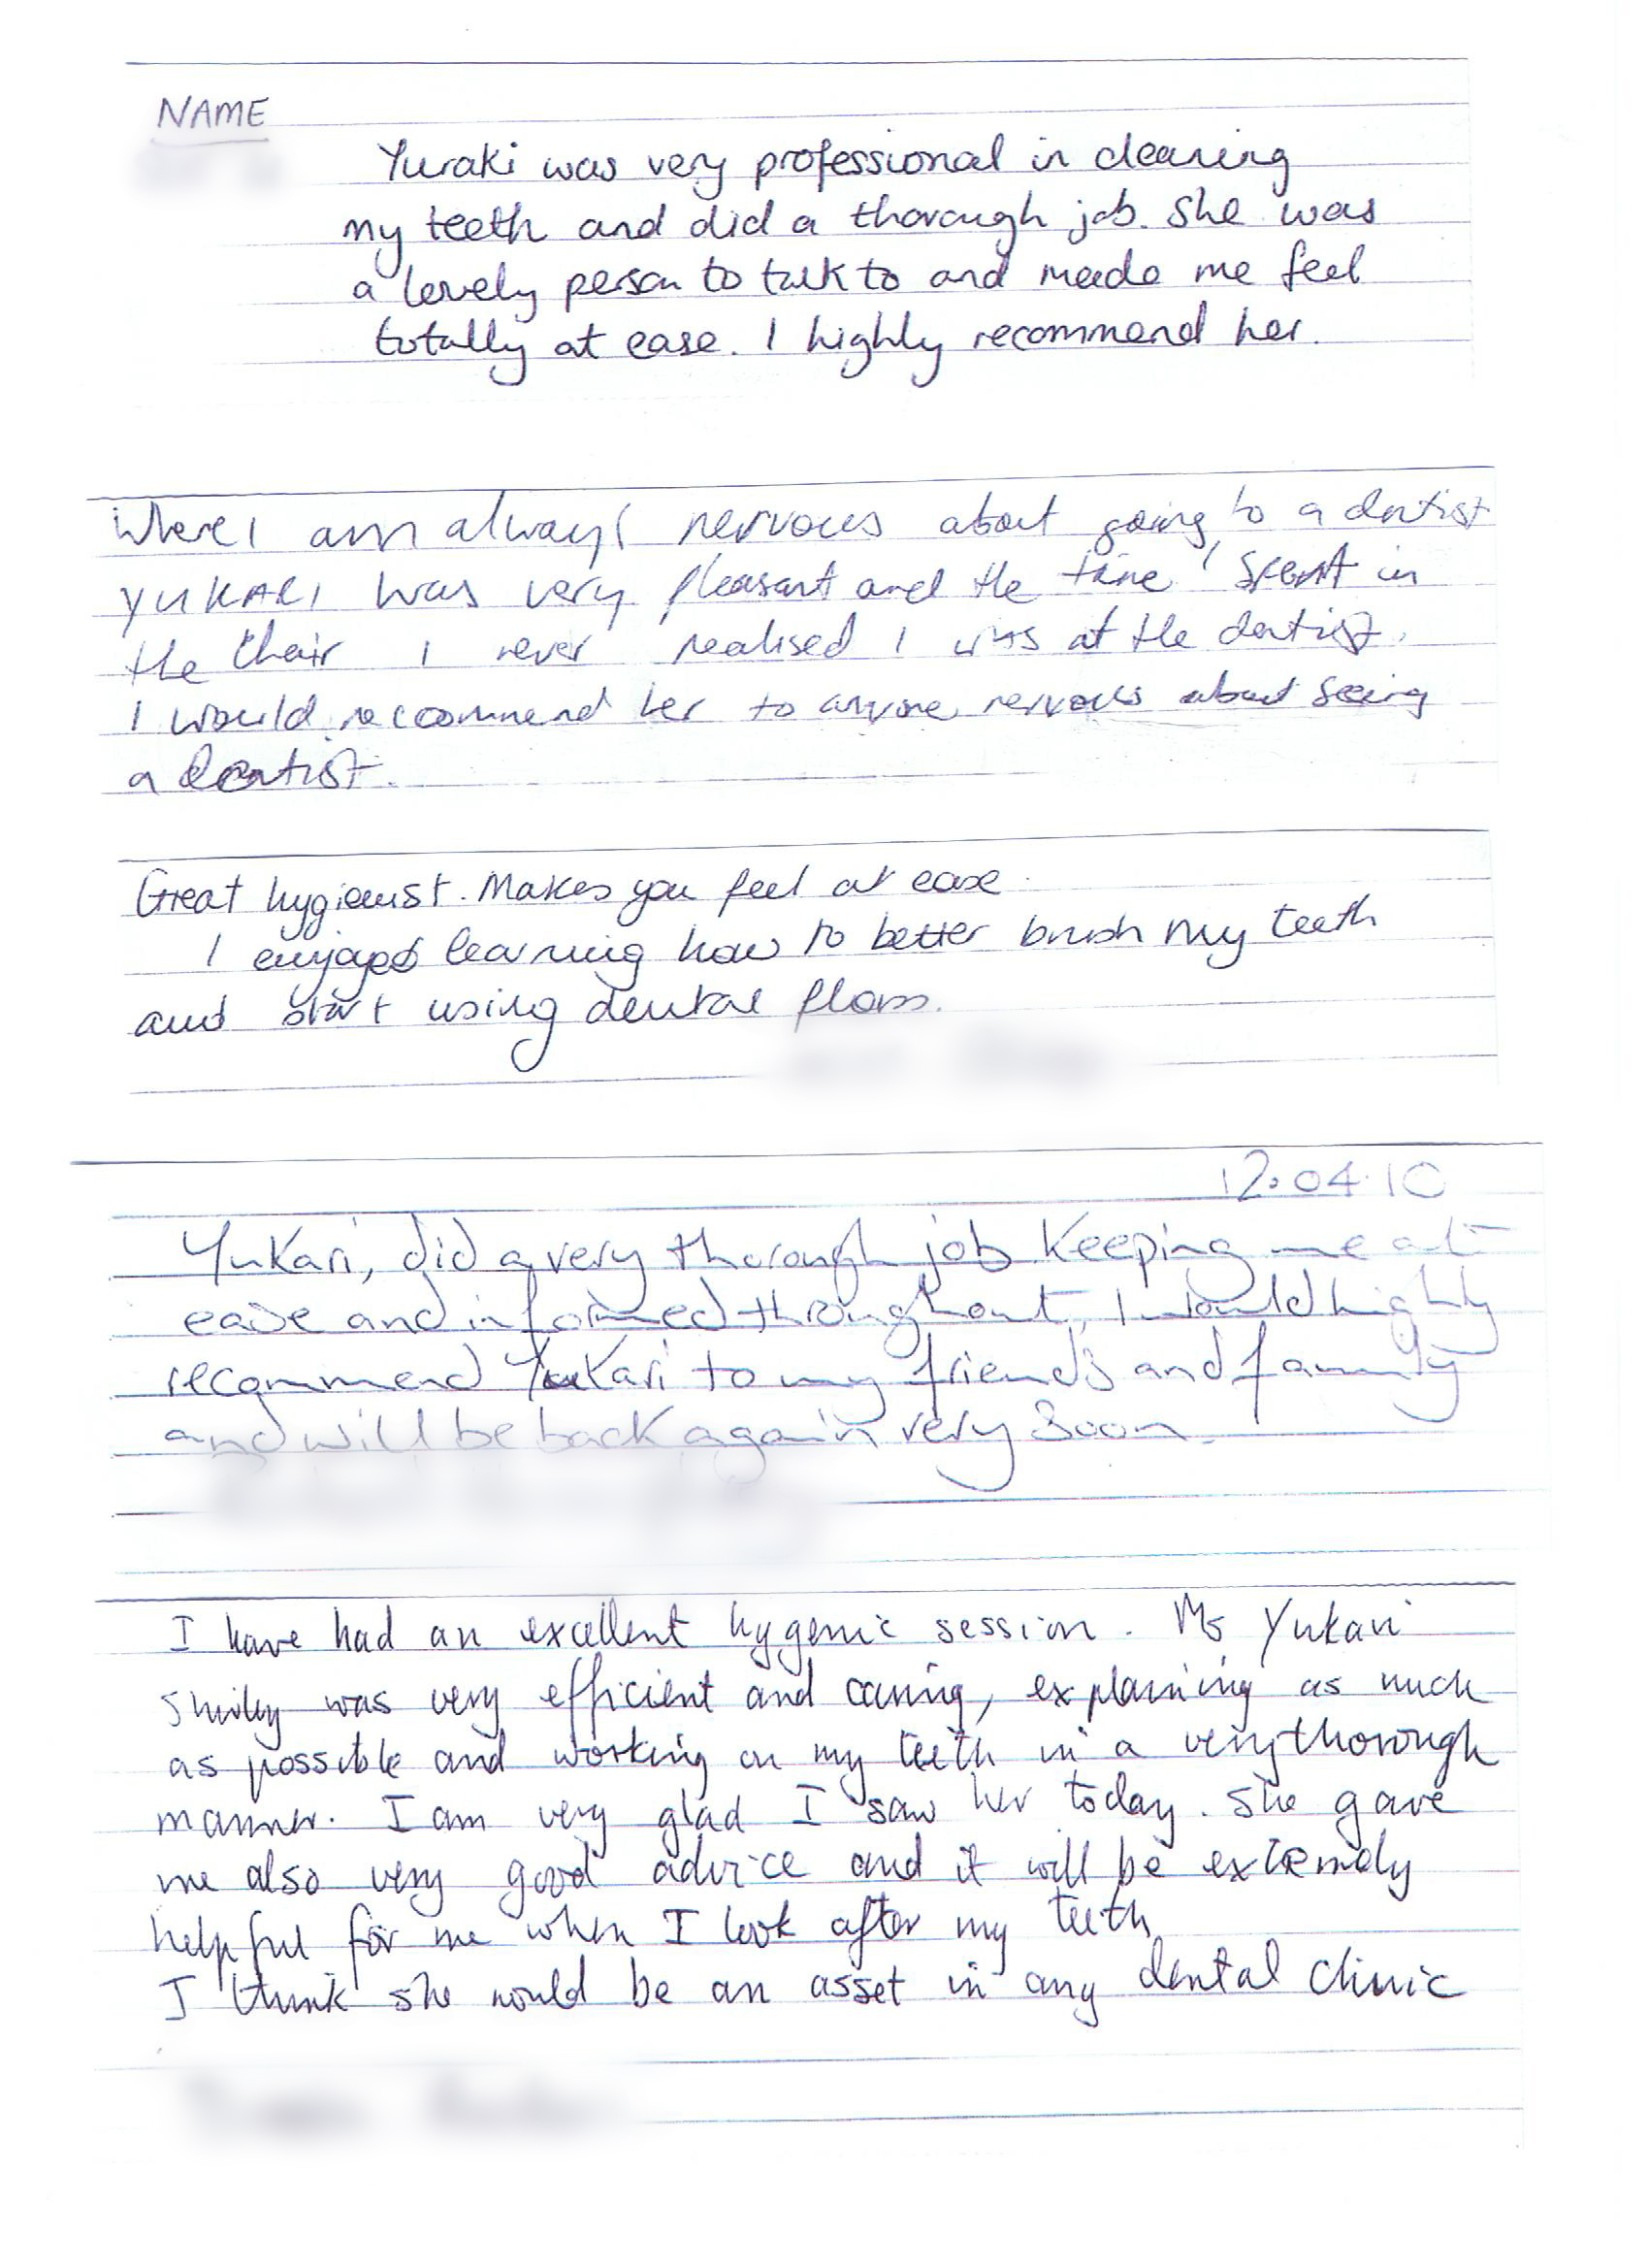 NAME
Yuraki was very professional in cleaning
my teeth and did a thorough job. She was
a lovely person to talk to and made me feel
totally at ease. I highly recommend her.
Where I am always nervous about going to a dentist
YUKARI was very pleasant and the time I spent in
the chair I never realised I was at the dentist.
I would recommend her to anyone nervous about seeing
a dentist.
Great hygienist. Makes you feel at ease.
I enjoyed learning how to better brush my teeth
and start using dental floss.
12.04.10
Yukari, did a very thorough job. Keeping me at
ease and informed throughout, I would highly
recommend Yukari to my friends and family
and will be back again very soon.
I have had an excellent hygenic session. Ms Yukari
was very efficient and caring, explaining as much
as possible and working on my teeth in a very thorough
manner. I am very glad I saw her today. She gave
me also very good advice and it will be extremely
helpful for me when I look after my teeth
I think she would be an asset in any dental clinic